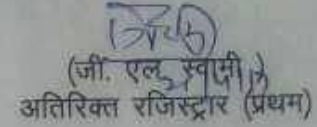 (जी. एल. स्वामी)
अतिरिक्त रजिस्ट्रार (प्रथम)